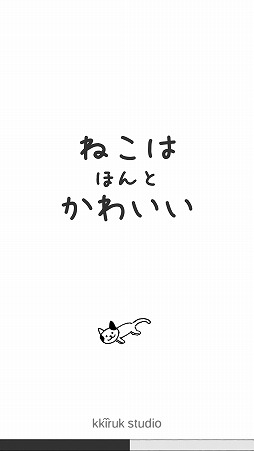 ねこは
ほんと
かわいい
kkiruk studio